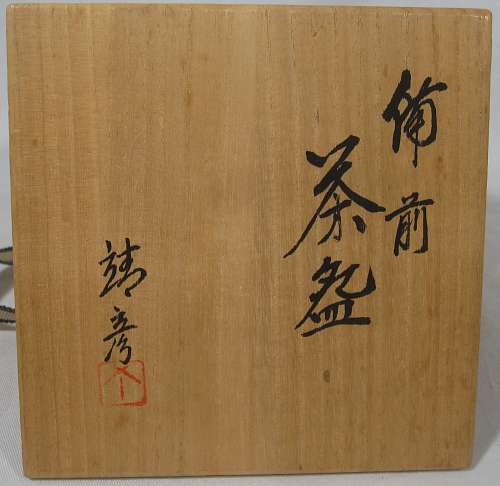 備前
茶盌
靖彦